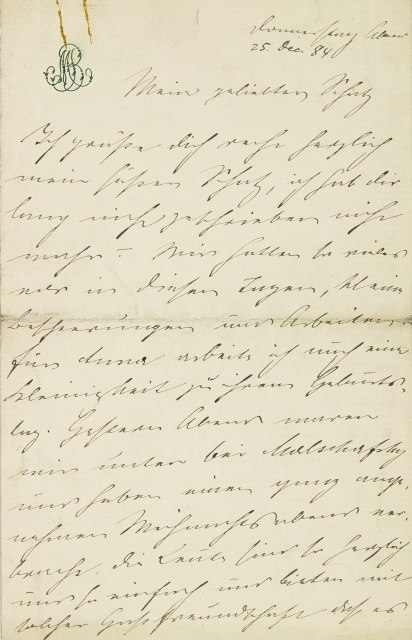 Donnerstag Abend
25. Dec. 84.
Mein geliebter Schatz
Ich grüße dich recht herzlich
mein süßer Schatz, ich hab dir
lang nicht geschrieben nicht
wahr? Wir hatten so vieles
in diesen Tagen, kleine
Bescheerungen und Arbeiten,
für Anna arbeite ich noch eine
Kleinigkeit zu ihrem Geburts-
tag. Gestern Abend waren
wir unten bei Malschafsky
und haben einen ganz ange-
nehmen Weihnachtsabend ver-
bracht. Die Leute sind so herzlich
und so einfach und bieten mit
solcher Gastfreundschaft daß es